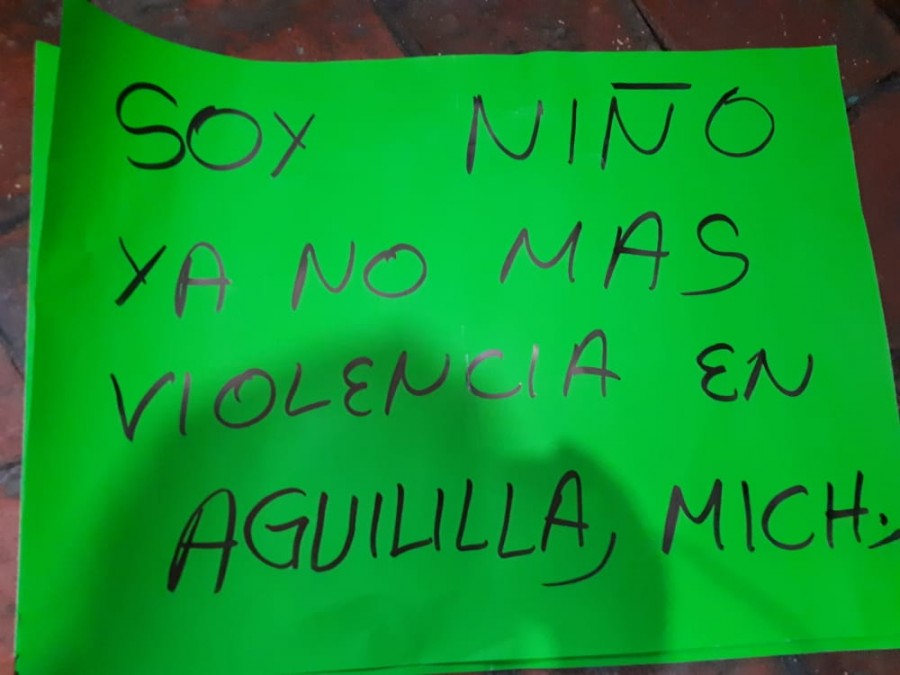 SOY NIÑO
YA NO MAS
VIOLENCIA EN
AGUILILLA, MICH.,